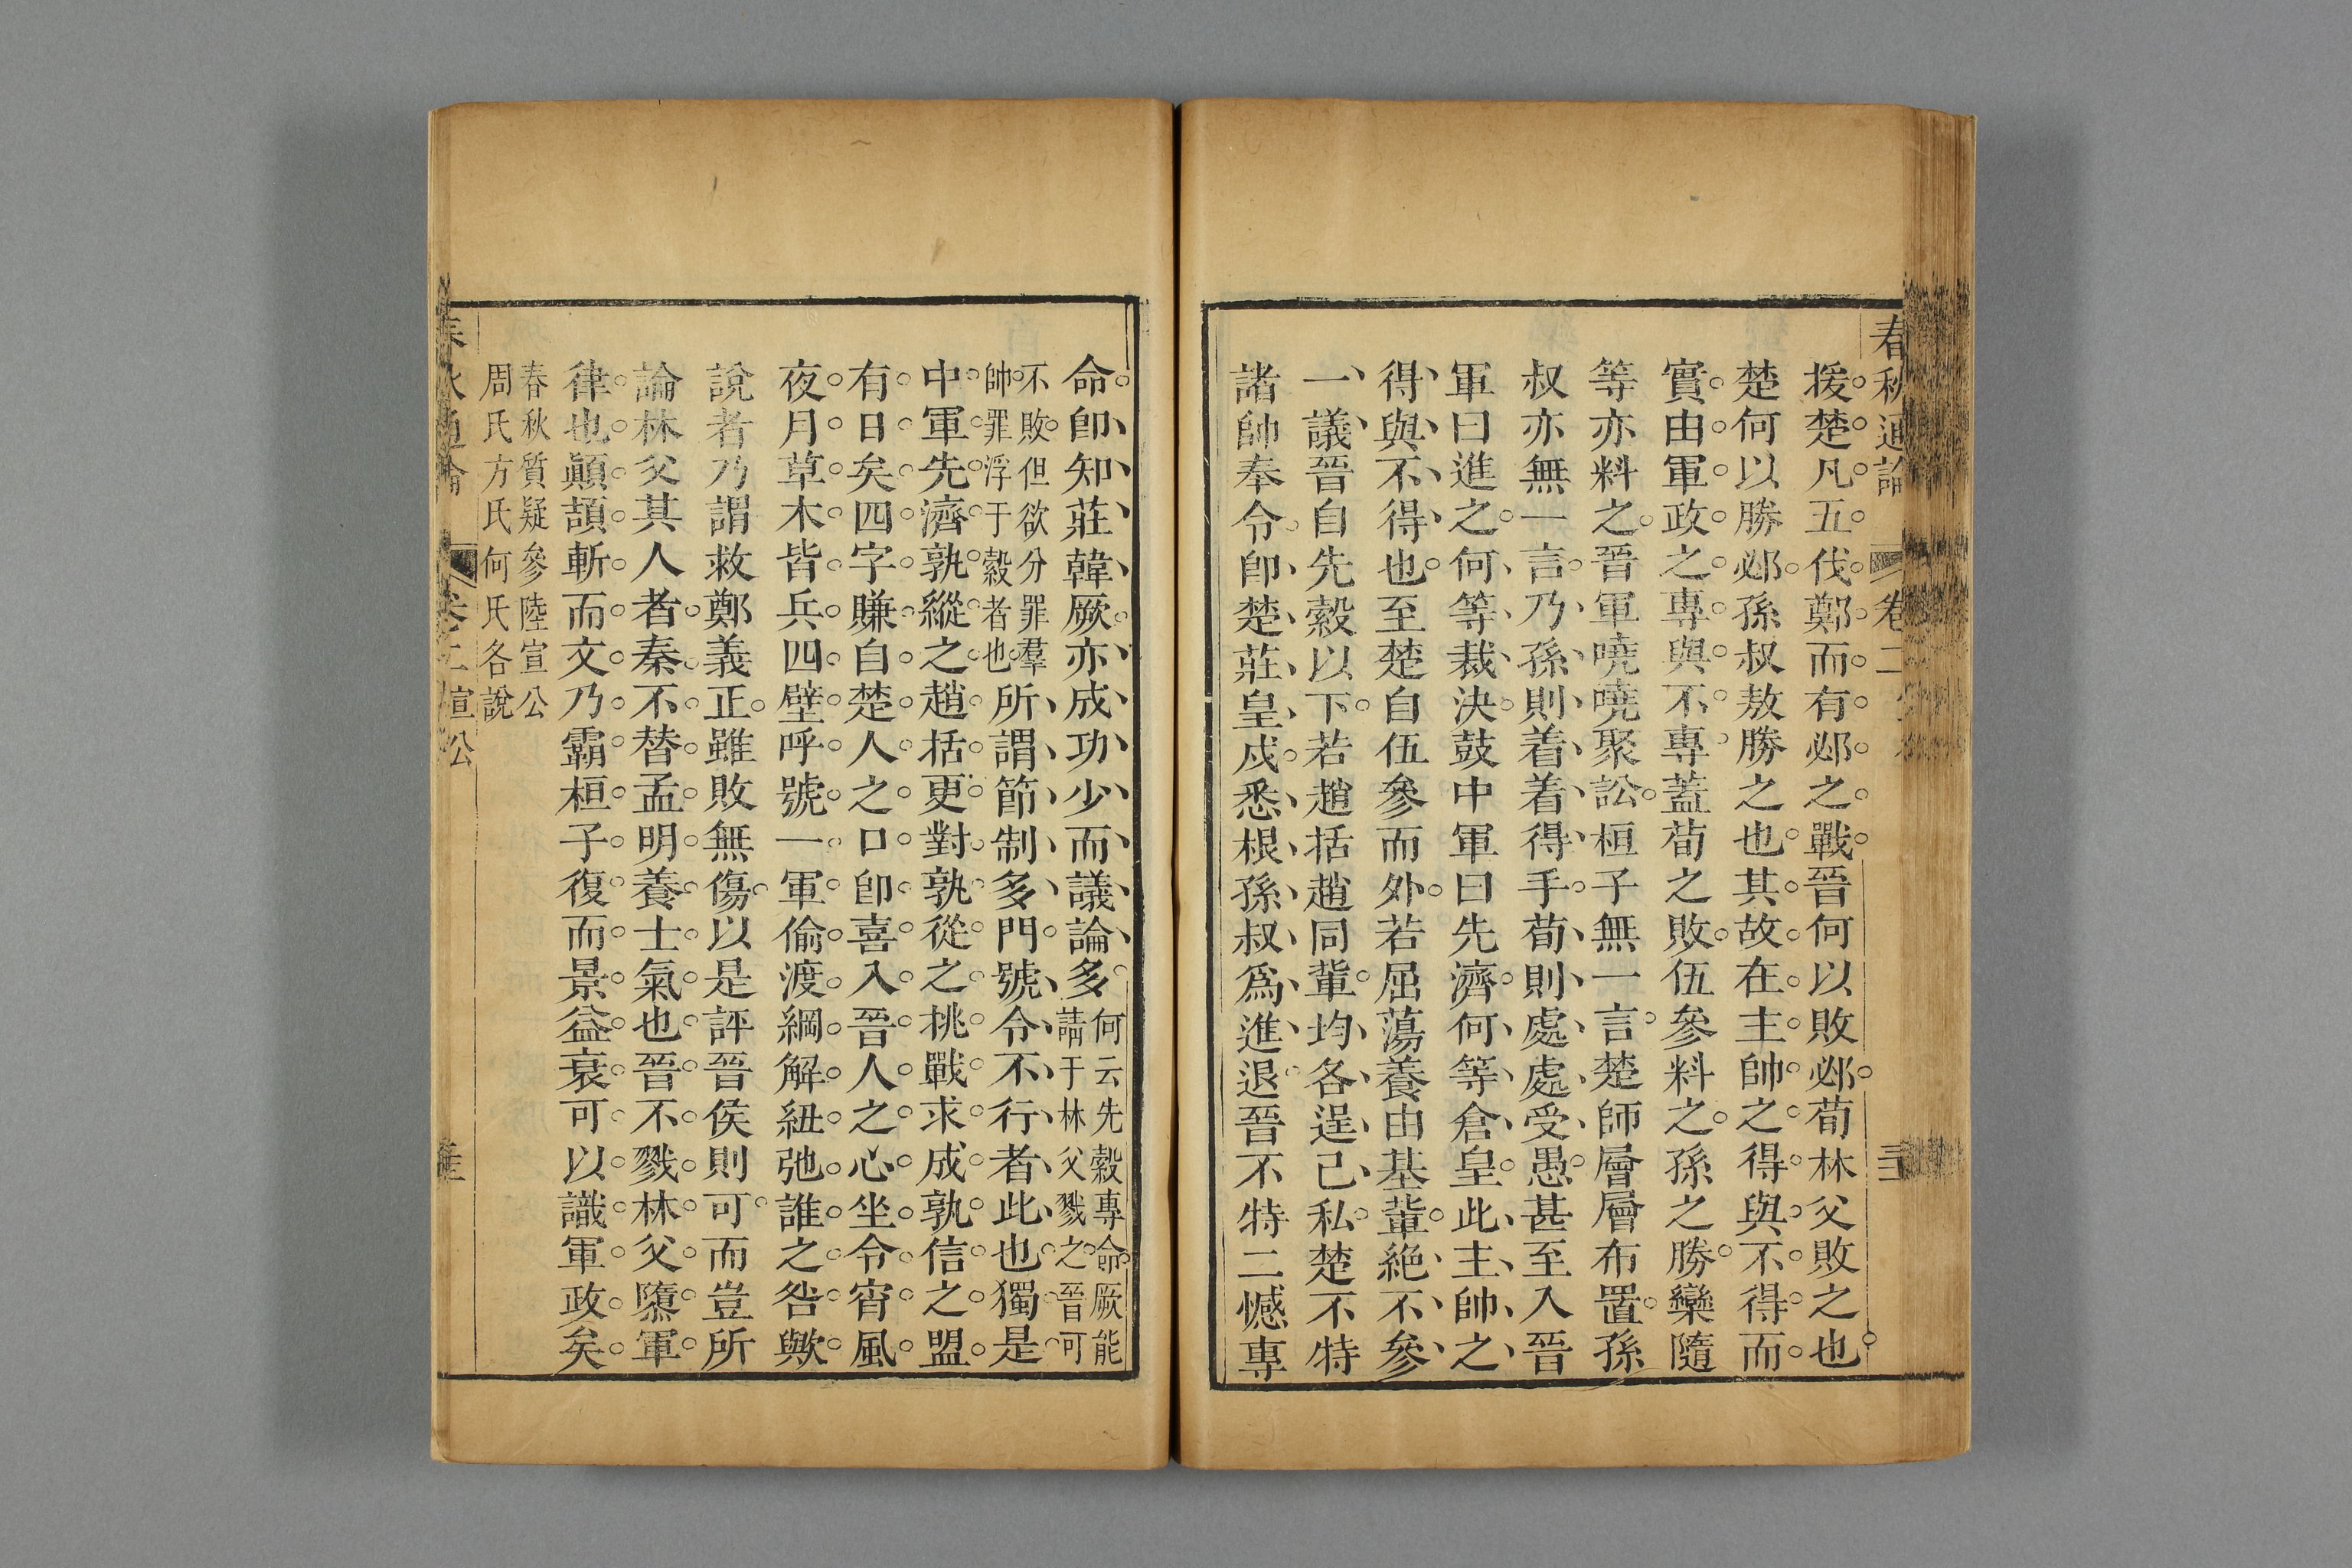 春秋通論 卷二 三
援楚凡五伐鄭而有邲之戰晉何以敗邲荀林父敗之也
楚何以勝邲孫叔敖勝之也其故在主帥之得與不得而
實由軍政之專與不專蓋荀之敗伍參料之孫之勝欒隨
等亦料之晉軍嘵嘵聚訟桓子無一言楚師層層布置孫
叔亦無一言乃孫則着着得手荀則處處受愚甚至入晉
軍曰進之何等裁決鼓中軍曰先濟何等倉皇此主帥之
得與不得也至楚自伍參而外若屈蕩養由基輩絶不參
一議晉自先縠以下若趙括趙同輩均各逞己私楚不特
諸帥奉令卽楚莊皇戍悉根孫叔爲進退晉不特二憾專
命卽知莊韓厥亦成功少而議論多何云先縠專命厥能
請于林父戮之晉可
不敗但欲分罪羣
帥罪浮于縠者也所謂節制多門號令不行者此也獨是
中軍先濟孰縱之趙括更對孰從之挑戰求成孰信之盟
有日矣四字賺自楚人之口卽喜入晉人之心坐令宵風
夜月草木皆兵四壁呼號一軍偷渡綱解紐弛誰之咎歟
說者乃謂救鄭義正雖敗無傷以是評晉侯則可而豈所
論林父其人者秦不替孟明養士氣也晉不戮林父隳軍
律也顚頡斬而文乃霸桓子復而景益衰可以識軍政矣
春秋質疑參陸宣公
周氏方氏何氏各說
春秋通論 卷二宣公